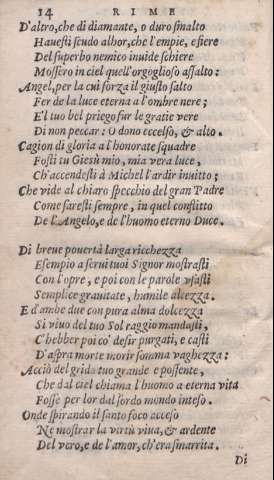 14 RIME
D'altro, che di diamante, o duro smalto
Hauesti scudo alhor, che l'empie, e fiere
Del superbo nemico inuide schiere
Mossero in ciel quell'orgoglioso assalto:
Angel, per la cui forza il giusto salto
Fer de la luce eterna a l'ombre nere;
E'l tuo bel priego fur le gratie vere
Di non peccar: O dono eccelso, & alto.
Cagion di gloria a l'honorate squadre
Fosti tu Giesù mio, mia vera luce,
Ch'accendesti à Michel l'ardir inuitto;
Che vide al chiaro specchio del gran Padre
Come saresti sempre, in quel conflitto
De l'Angelo, e de l'huomo eterno Duce.
Di breue pouertà larga ricchezza
Esempio a serui tuoi Signor mostrasti
Con l'opre, e poi con le parole vsasti
Semplice grauitate, humile altezza.
E d'ambe due con pura alma dolcezza
Si viuo del tuo Sol raggio mandasti,
C'hebber poi co' desir purgati, e casti
D'aspra morte morir somma vaghezza:
Acciò del grido tuo grande e possente,
Che dal ciel chiama l'huomo a eterna vita
Fosse per lor dal sordo mondo inteso.
Onde spirando il santo foco acceso
Ne mostrar la virtù viua, & ardente
Del vero, e de l'amor, ch'era smarrita.
Di